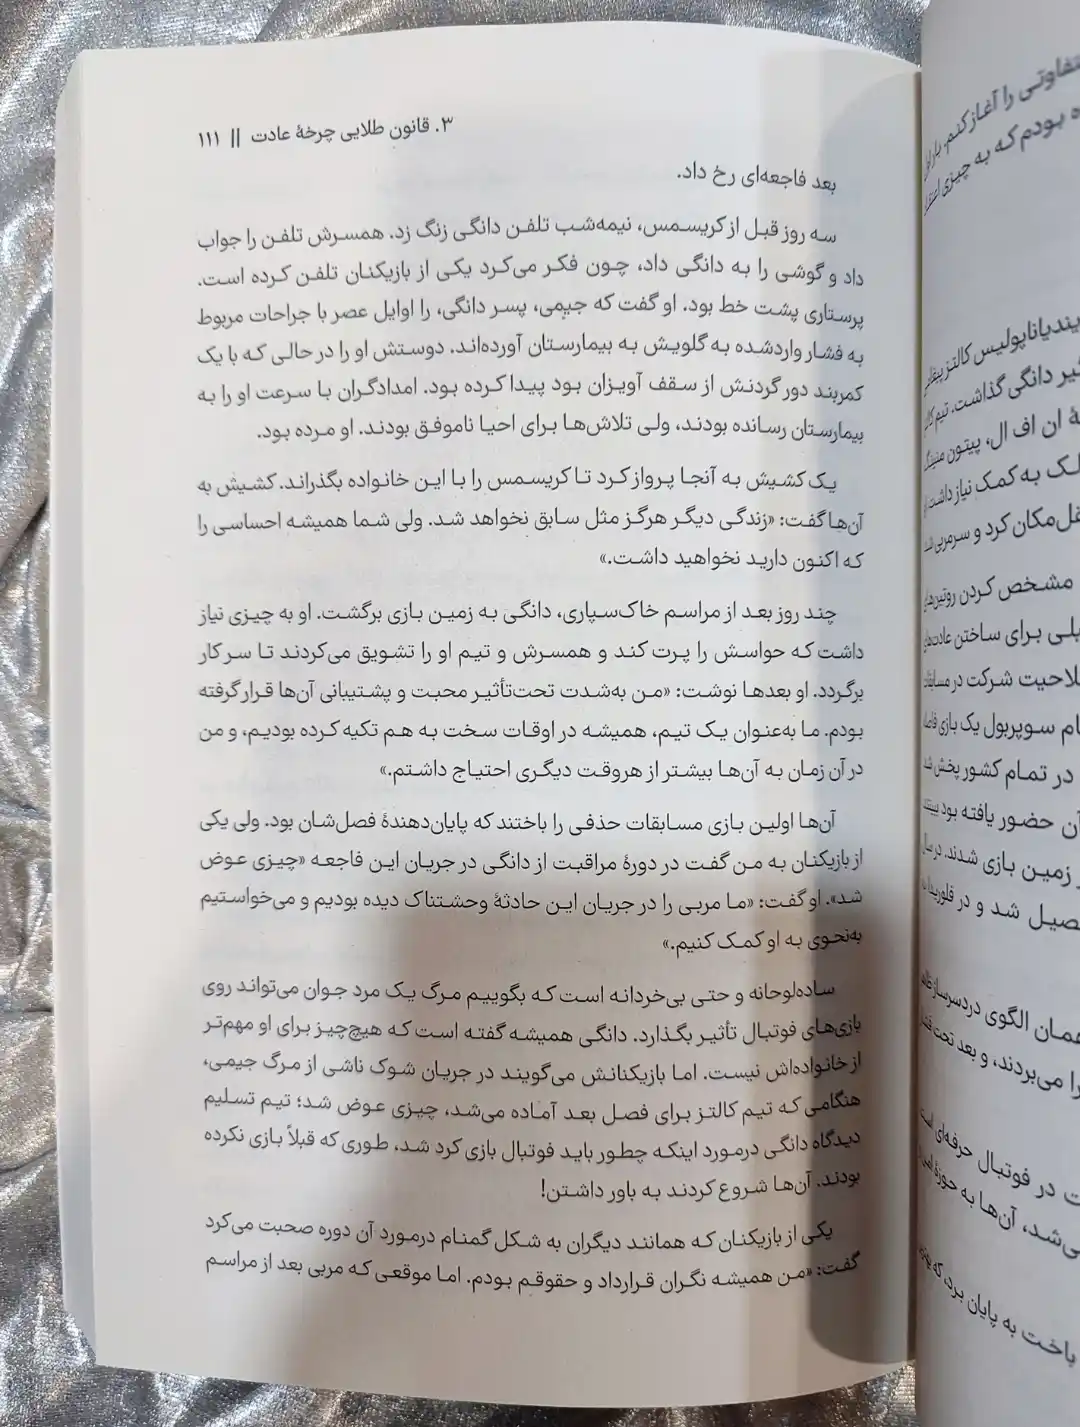 ۳. قانون طلایی چرخهٔ عادت || ۱۱۱
بعد فاجعه‌ای رخ داد.
سه روز قبل از کریسمس، نیمه‌شب تلفن دانگی زنگ زد. همسرش تلفن را جواب
داد و گوشی را به دانگی داد، چون فکر می‌کرد یکی از بازیکنان تلفن کرده است.
پرستاری پشت خط بود. او گفت که جیمی، پسر دانگی، را اوایل عصر با جراحات مربوط
به فشار واردشده به گلویش به بیمارستان آورده‌اند. دوستش او را در حالی که با یک
کمربند دور گردنش از سقف آویزان بود پیدا کرده بود. امدادگران با سرعت او را به
بیمارستان رسانده بودند، ولی تلاش‌ها برای احیا ناموفق بودند. او مرده بود.
یک کشیش به آنجا پرواز کرد تا کریسمس را با این خانواده بگذراند. کشیش به
آن‌ها گفت: «زندگی دیگر هرگز مثل سابق نخواهد شد. ولی شما همیشه احساسی را
که اکنون دارید نخواهید داشت.»
چند روز بعد از مراسم خاک‌سپاری، دانگی به زمین بازی برگشت. او به چیزی نیاز
داشت که حواسش را پرت کند و همسرش و تیم او را تشویق می‌کردند تا سر کار
برگردد. او بعدها نوشت: «من به‌شدت تحت‌تأثیر محبت و پشتیبانی آن‌ها قرار گرفته
بودم. ما به‌عنوان یک تیم، همیشه در اوقات سخت به هم تکیه کرده بودیم، و من
در آن زمان به آن‌ها بیشتر از هروقت دیگری احتیاج داشتم.»
آن‌ها اولین بازی مسابقات حذفی را باختند که پایان‌دهندهٔ فصل‌شان بود. ولی یکی
از بازیکنان به من گفت در دورهٔ مراقبت از دانگی در جریان این فاجعه «چیزی عوض
شد». او گفت: «ما مربی را در جریان این حادثهٔ وحشتناک دیده بودیم و می‌خواستیم
به‌نحوی به او کمک کنیم.»
ساده‌لوحانه و حتی بی‌خردانه است که بگوییم مرگ یک مرد جوان می‌تواند روی
بازی‌های فوتبال تأثیر بگذارد. دانگی همیشه گفته است که هیچ‌چیز برای او مهم‌تر
از خانواده‌اش نیست. اما بازیکنانش می‌گویند در جریان شوک ناشی از مرگ جیمی،
هنگامی که تیم کالتز برای فصل بعد آماده می‌شد، چیزی عوض شد؛ تیم تسلیم
دیدگاه دانگی درمورد اینکه چطور باید فوتبال بازی کرد شد، طوری که قبلاً بازی نکرده
بودند. آن‌ها شروع کردند به باور داشتن!
یکی از بازیکنان که همانند دیگران به شکل گمنام درمورد آن دوره صحبت می‌کرد
گفت: «من همیشه نگران قرارداد و حقوقم بودم. اما موقعی که مربی بعد از مراسم
تفاوتی را آغاز کنم. بار اول
بودم که به چیزی
یندیاناپولیس کالتز
دانگی گذاشت. تیم
ان اف ال، پیتون
به کمک نیاز داشت
مکان کرد و سرمربی
مشخص کردن روتین‌های
برای ساختن عادت‌های
صلاحیت شرکت در
سوپربول یک بازی
در تمام کشور پخش
آن حضور یافته بود
زمین بازی شدند. در
شد و در فلوریدا
همان الگوی دردسرساز
را می‌بردند، و بعد تحت
در فوتبال حرفه‌ای
می‌شد، آن‌ها به حوزهٔ
باخت به پایان برد، که